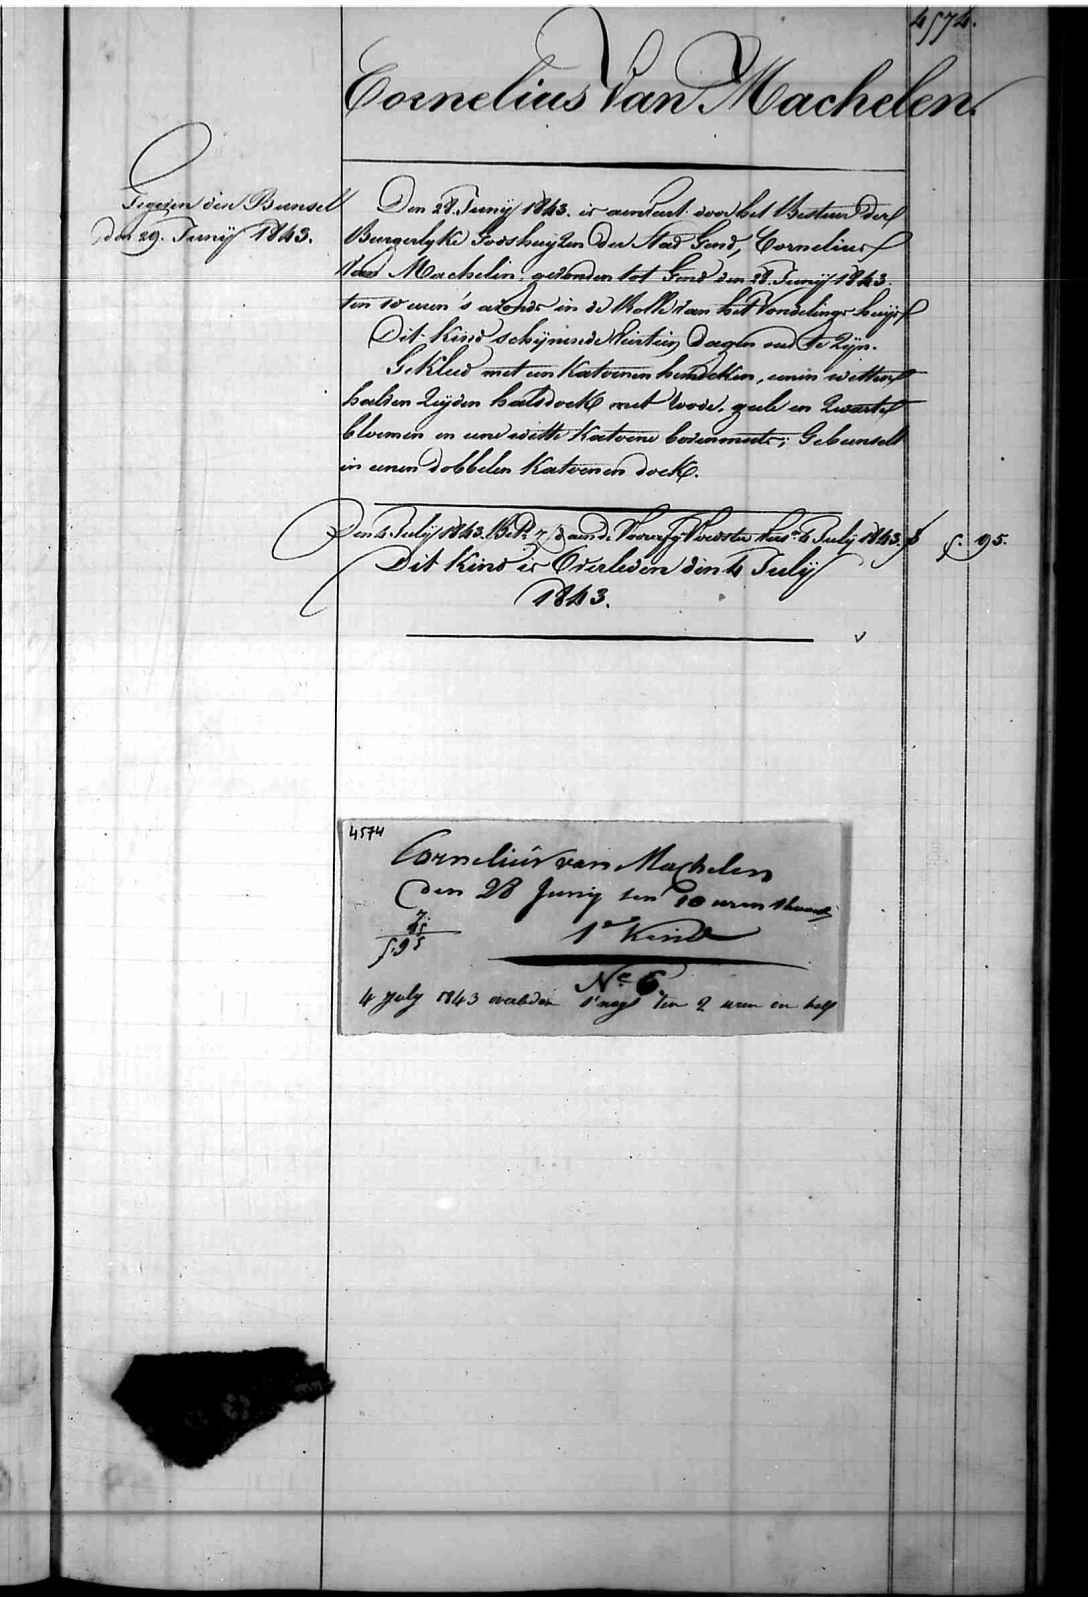 4574.
Cornelius Van Machelen.
Gegeven den Bunsel
den 29. Junij 1843.
Den 28. Junij 1843. is aenveert door het Bestuer der
Burgerlyke Godshuyzen der Stad Gend, Cornelius
Van Machelen, gevonden tot Gend den 28. Junij 1843.
ten 10 uren 's avonds in de Rolle van het Vondelingshuys
Dit Kind schynende Veirtien Dagen oud te Zyn.
Gekleed met een Katoenen hemdeken, eenen witten
halven Zyden halsdoek met roode, geele en Zwarte
bloemen en eene witte Katoene bovenmuts; Gebunselt
in eenen dobbelen Katoenen doek.
Den 4 July 1843. 6 July 1843.
f. 95.
Dit Kind is Overleden den 4 July
1843.
4574
Cornelius van Machelen
den 28 Junij ten 10 uren
1e Kind
f. 95
No 6.
4 july 1843 overleden s'nags ten 2 uren en half